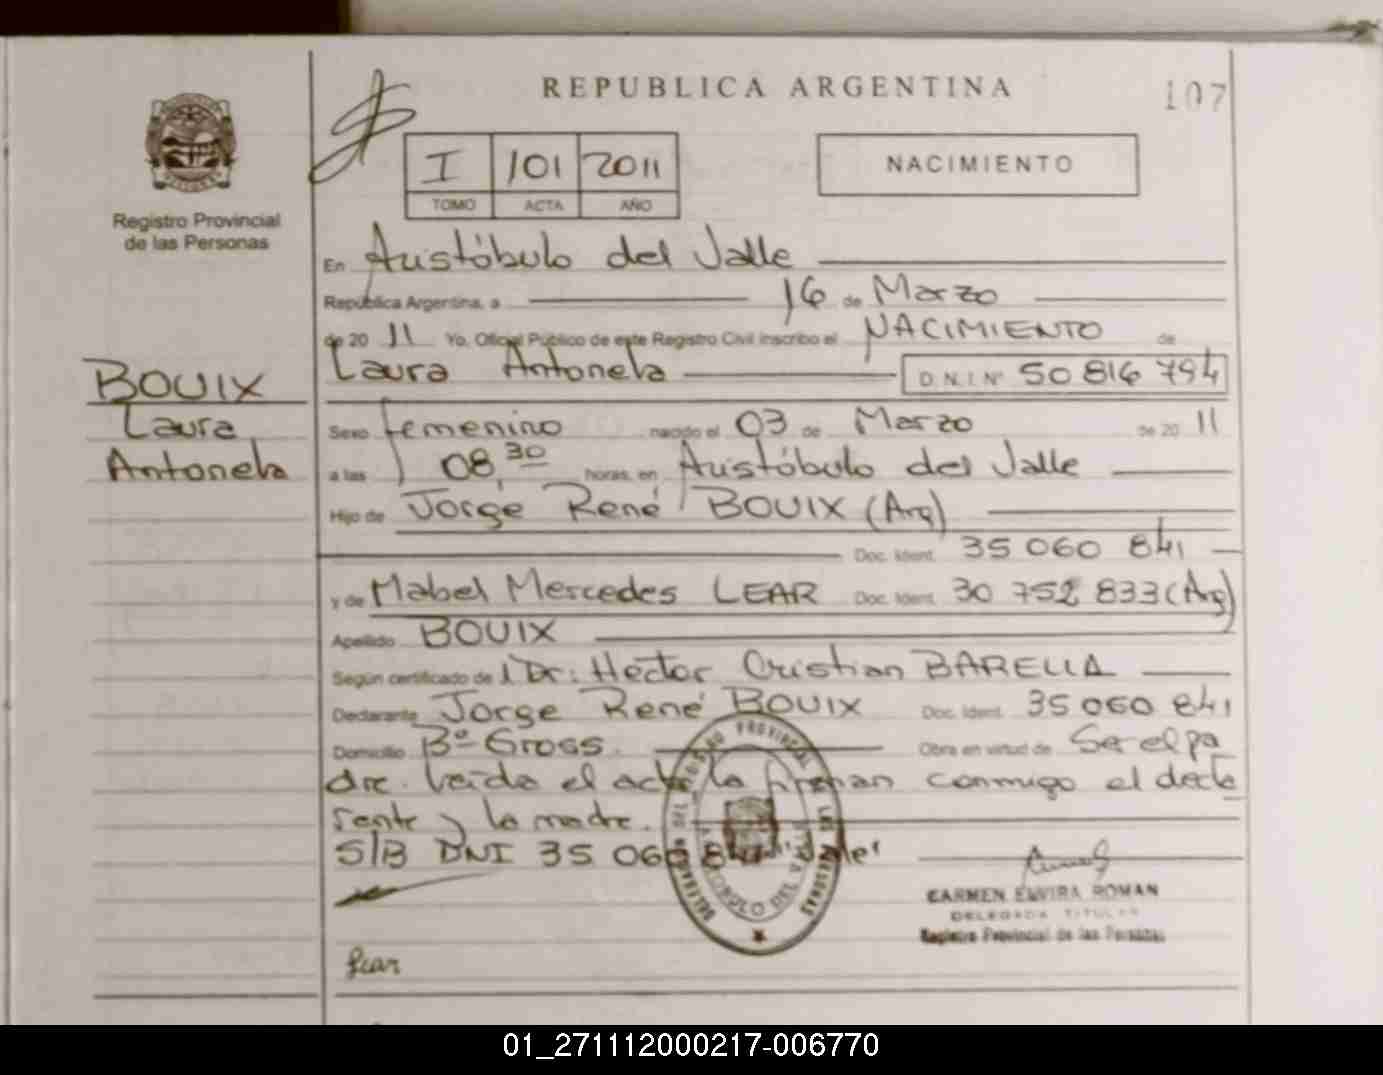 REPUBLICA ARGENTINA
107
I 101 2011
TOMO ACTA AÑO
NACIMIENTO
Registro Provincial
de las Personas
En Aristóbulo del Valle
República Argentina, a 16 de Marzo
de 20 11 Yo, Oficial Público de este Registro Civil inscribo el NACIMIENTO de
Laura Antonela D.N.I. Nº 50 816 794
BOUIX
Laura
Antonela
Sexo femenino nacido el 03 de Marzo de 20 11
a las 08,30 horas, en Aristóbulo del Valle
Hijo de Jorge René BOUIX (Arg)
Doc. Ident. 35 060 841
y de Mabel Mercedes LEAR Doc. Ident. 30 752 833 (Arg)
Apellido BOUIX
Según certificado de Dr: Héctor Cristian BARELLA
Declarante Jorge René BOUIX Doc. Ident. 35 060 841
Domicilio Bº Gross. Obra en virtud de Ser el pa
dre. Leída el acta la firman conmigo el decla
rante y la madre.
S/B DNI 35 060 841 "Vale"
REGISTRO PROVINCIAL DE LAS PERSONAS
ARISTOBULO DEL VALLE
CARMEN ELVIRA ROMAN
DELEGADA TITULAR
Registro Provincial de las Personas
Lear
01_271112000217-006770